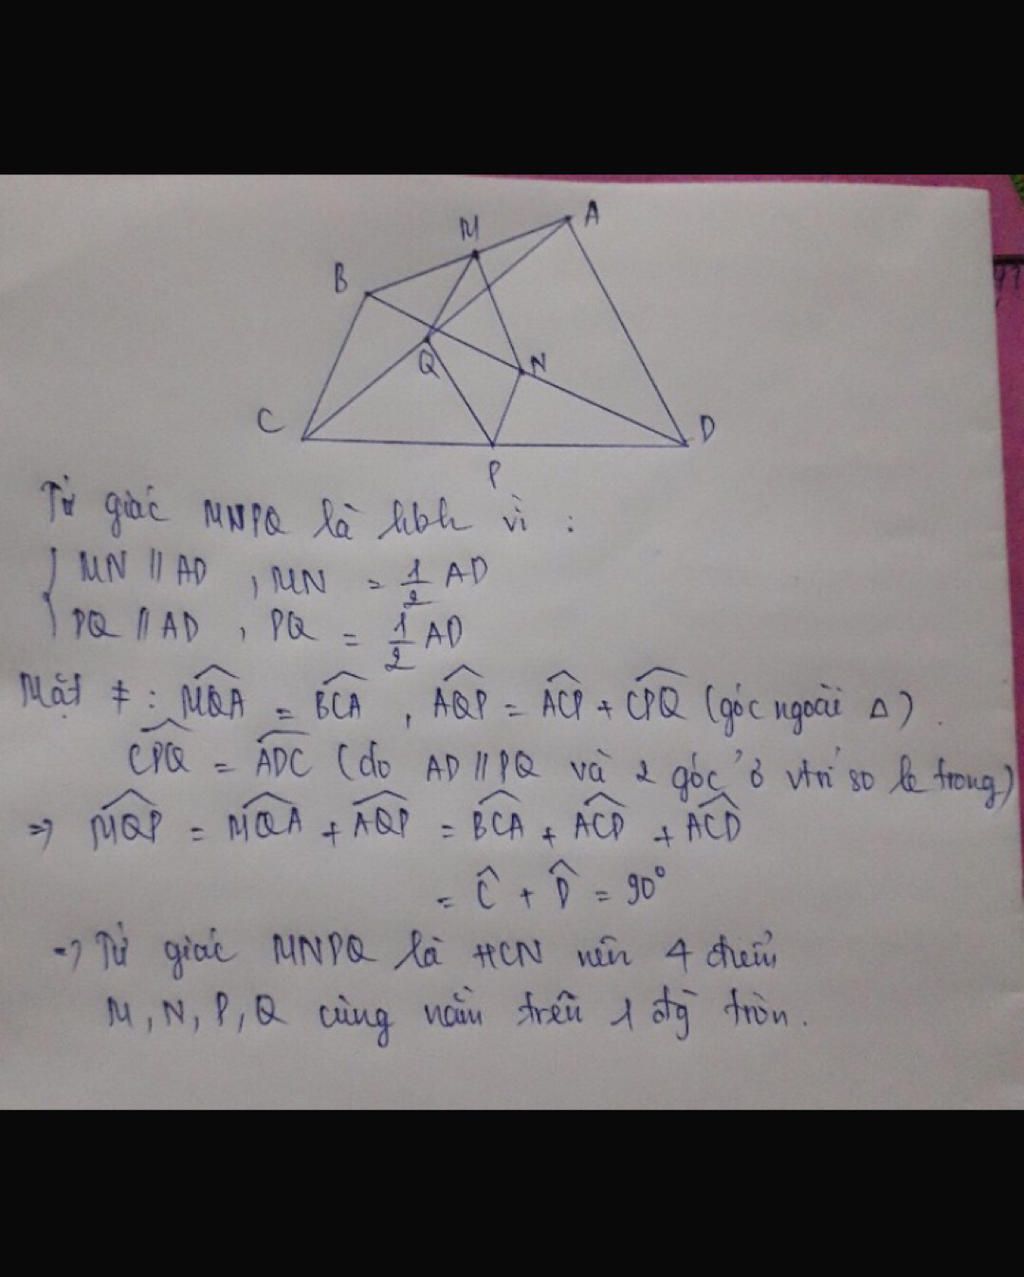 A
M
B
Q
N
C
D
P
Tứ giác MNPQ là hbh vì :
{ MN // AD , MN = 1/2 AD
PQ // AD , PQ = 1/2 AD
Mặt ≠ : \widehat{MQA} = \widehat{BCA} , \widehat{AQP} = \widehat{ACP} + \widehat{CPQ} (góc ngoài Δ) .
\widehat{CPQ} = \widehat{ADC} (do AD // PQ và 2 góc ở vtrí so le trong)
=> \widehat{MQP} = \widehat{MQA} + \widehat{AQP} = \widehat{BCA} + \widehat{ACD} + \widehat{ACD}
= \widehat{C} + \widehat{D} = 90°
=> Tứ giác MNPQ là HCN nên 4 điểm
M, N, P, Q cùng nằm trên 1 đg tròn .